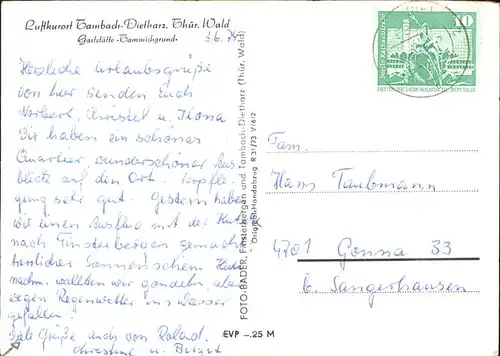 Luftkurort Tambach-Dietharz, Thür. Wald
Gaststätte Tammichgrund
3.6.74
Herzliche Urlaubsgrüße
von hier senden Euch
Norbert, Christel u. Ilona
Wir haben ein schönes
Quartier, wunderschöner Aus
blick auf den Ort. Verpfle-
gung sehr gut. Gestern haben
wir einen Ausflug mit der
nach Finsterbergen gemacht
herrlicher Sonnenschein. Heute
nachm. wollten wir gondeln, aber
wegen Regenwetter ins Wasser
gefallen.
Viele Grüße auch von Roland,
Christine u. Birgit
FOTO-BADER, Finsterbergen und Tambach-Dietharz (Thür. Wald)
Original-Handabzug R 31/73 V/6/2
EVP –.25 M
10
DEUTSCHE DEMOKRATISCHE REPUBLIK
Fam.
Hans Taubmann
4701 Gonna 33
b. Sangerhausen